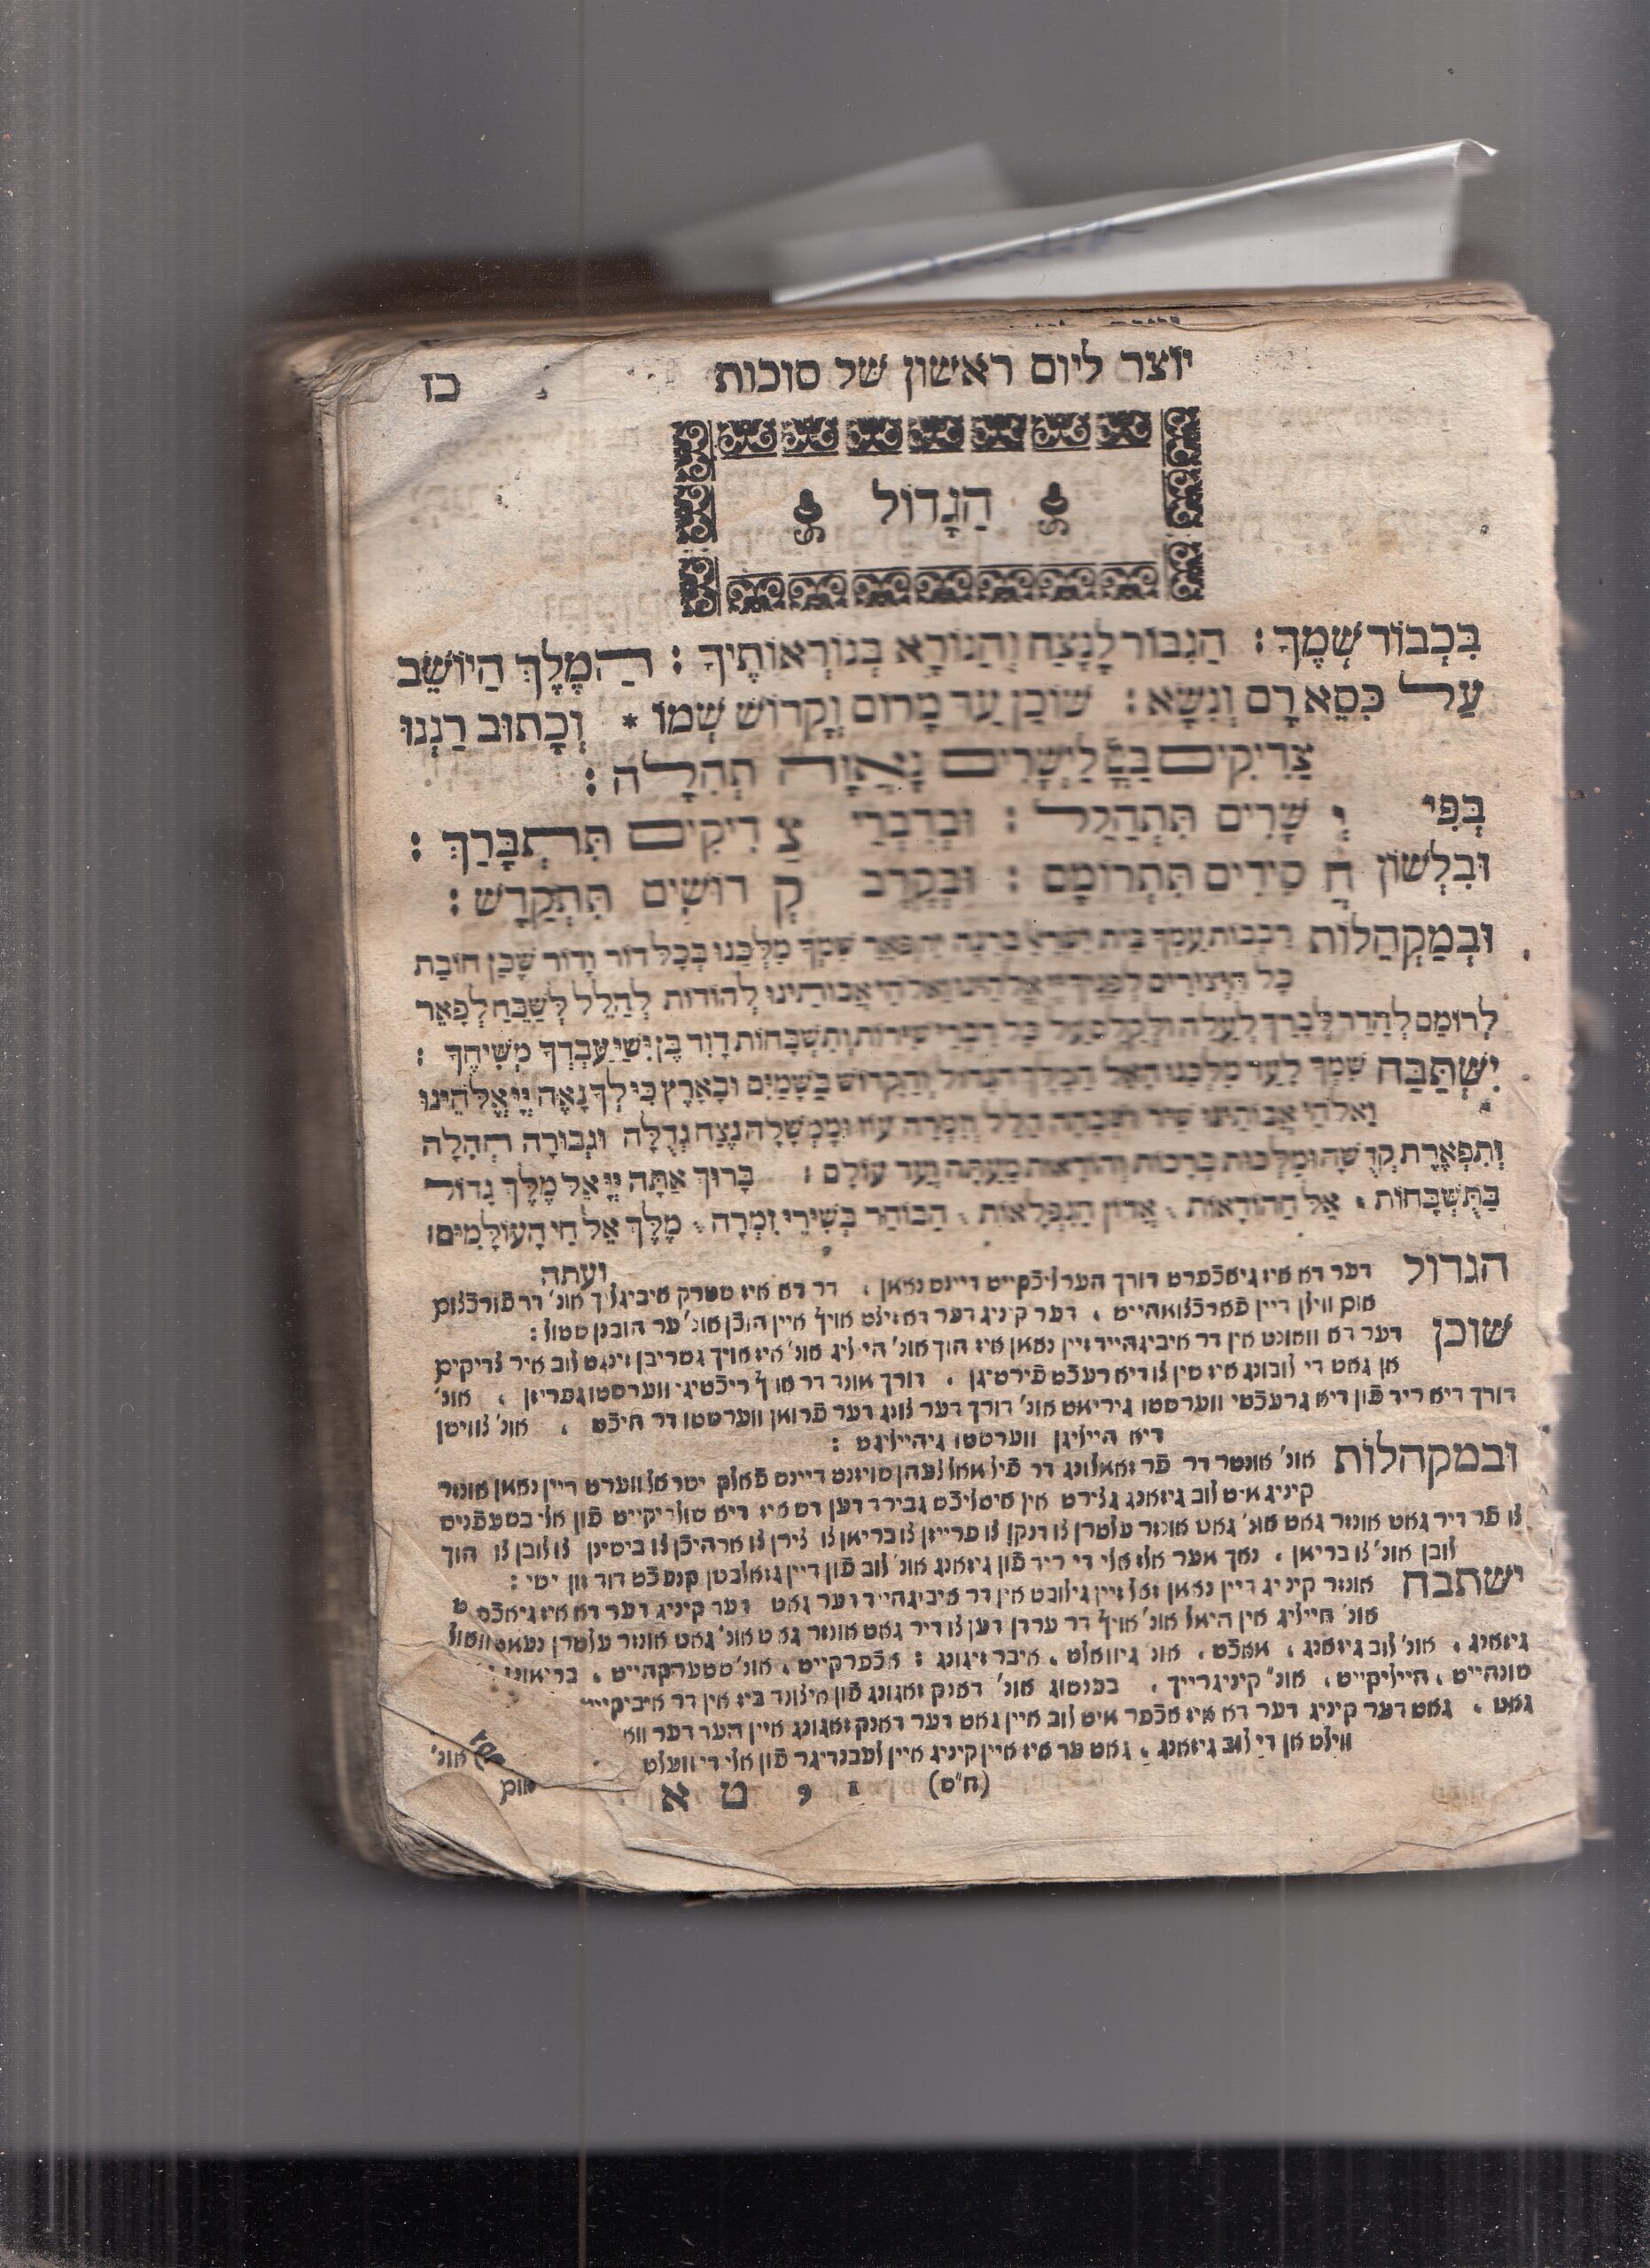 יוצר ליום ראשון של סוכות כז
הַגָדוֹל
בִּכְבוֹד שְׁמֶךָ : הַגִבּוֹר לָנֶצַח וְהַנוֹרָא בְּנוֹרְאוֹתֶיךָ : הַמֶלֶךְ הַיוֹשֵׁב
עַל כִּסֵא רָם וְנִשָׂא : שׁוֹכֵן עַד מָרוֹם וְקָדוֹשׁ שְׁמוֹ * וְכָתוּב רַנְנוּ
צַדִיקִים בַּיְיָ לַיְשָׁרִים נָאוָה תְהִלָה :
בְּפִי יְ שָׁרִים תִּתְהַלַל : וּבְדִבְרֵי צַ דִיקִים תִּתְבָּרַךְ :
וּבִלְשׁוֹן חֲ סִידִים תִּתְרוֹמָם : וּבְקֶרֶב קְ דוֹשִׁים תִּתְקַדָשׁ :
וּבְמַקְהַלוֹת רִבְבוֹת עַמְךָ בֵּית יִשְׂרָאֵל בְּרִנָה יִתְפָּאֵר שִׁמְךָ מַלְכֵּנוּ בְּכָל דוֹר וָדוֹר שֶׁכֵּן חוֹבַת
כָּל הַיְצוּרִים לְפָנֶיךָ יְיָ אֱלֹהֵינוּ וֵאלֹהֵי אֲבוֹתֵינוּ לְהוֹדוֹת לְהַלֵל לְשַׁבֵּחַ לְפָאֵר
לְרוֹמֵם לְהַדֵר לְבָרֵךְ לְעַלֵה וּלְקַלֵס עַל כָּל דִבְרֵי שִׁירוֹת וְתִשְׁבָּחוֹת דָוִד בֶּן יִשַׁי עַבְדְךָ מְשִׁיחֶךָ :
יִשְׁתַּבַּח שִׁמְךָ לָעַד מַלְכֵּנוּ הָאֵל הַמֶלֶךְ הַגָדוֹל וְהַקָדוֹשׁ בַּשָׁמַיִם וּבָאָרֶץ כִּי לְךָ נָאֶה יְיָ אֱלֹהֵינוּ
וֵאלֹהֵי אֲבוֹתֵינוּ שִׁיר וּשְׁבָחָה הַלֵל וְזִמְרָה עוֹז וּמֶמְשָׁלָה נֶצַח גְדֻלָה וּגְבוּרָה תְּהִלָה
וְתִפְאֶרֶת קְדֻשָׁה וּמַלְכוּת בְּרָכוֹת וְהוֹדָאוֹת מֵעַתָּה וְעַד עוֹלָם : בָּרוּךְ אַתָּה יְיָ אֵל מֶלֶךְ גָדוֹל
בַּתֻּשְׁבָּחוֹת . אֵל הַהוֹדָאוֹת . אֲדוֹן הַנִפְלָאוֹת . הַבּוֹחֵר בְּשִׁירֵי זִמְרָה . מֶלֶךְ אֵל חַי הָעוֹלָמִים:
ועתה
הגדול דער דא איז גיאכֿפרט דורך הערליכֿקייט דיינס נאמן . דר דא איז שטרק איביגליך אונ' דר פֿורכֿטזם
אום ווילן דיין פֿארכֿטזאמהייט . דער קיניג דער דא זיצט אויף איין הוכֿן אונ' ער הובנן שטול :
שוכן דער דא וואונט אין דר איביגהייד זיין נאמן איז הוך אונ' היליג אונ' איז אויך גשריבן זינגט לוב איר צדיקים
אן גאט די לובונג איז שין צו דיא רעכֿט פֿירטיגן . דורך אונד דר אויף ריכֿטיגי ווערסטו גפריזן . אונ'
דורך דיא ריד פֿון דיא גרעכֿטי ווערסטו גיריאמט אונ' דורך דער צונג דער פֿרומן ווערסטו דר היכֿט . אונ' צווישן
דיא הייליגן ווערסטו גיהייליגט :
ובמקהלות אונ' אונטר דר פֿר זאמלונג דר פֿיל מאל צעהן טויזנט דיינס פֿאלק ישראל ווערט דיין נאמן אונזר
קיניג מיט לוב גיזאנג גצירט אין איטליכֿס גבירד דען דס איז דיא שולדיקייט פֿון אלי בשעפֿניס
צו פֿר דיר גאט אונזר גאט אונ' גאט אונזר עלטרן צו דנקן צו פרייזן צו בריאמן צו צירן צו ארהיכֿן צו בישינן צו לובן צו הוך
לובן אונ' צו בריאמן . נאך אער אלז אלי די ריד פֿון גיזאנג אונ' לוב פֿון דיין גזאלבטן קנעכֿט דוד זון ישי :
ישתבח אונזר קיניג דיין נאמן זאל זיין גילובט אין דר איביגהייד דער גאט דער קיניג דער דא איז גיאכֿפרט
אונ' הייליג אין הימל אונ' אויף דר ערדן דען צו דיר גאט אונזר גאט אונ' גאט אונזר עלטרן
גיזאנג . אונ' לוב גיזאנג . אמכֿט . אונ' גיוואלט . איבר זיגונג : אכֿפרקייט . אונ' שטערקהייט .
שונהייט . הייליקייט . אונ' קיניגרייך . בענשונג אונ' דאנק זאגונג פֿון איצונד ביז אין דר איביקייט
גאט . גאט דער קיניג דער דא איז אכֿפר מיט לוב איין גאט דער דאנק זאגונג איין הער דער
ווילט אן די לוב גיזאנג . גאט ער איז איין קיניג איין לעבנדיגר פֿון אלי די וועלט אונ'
(ח"ס) ז ט א אום